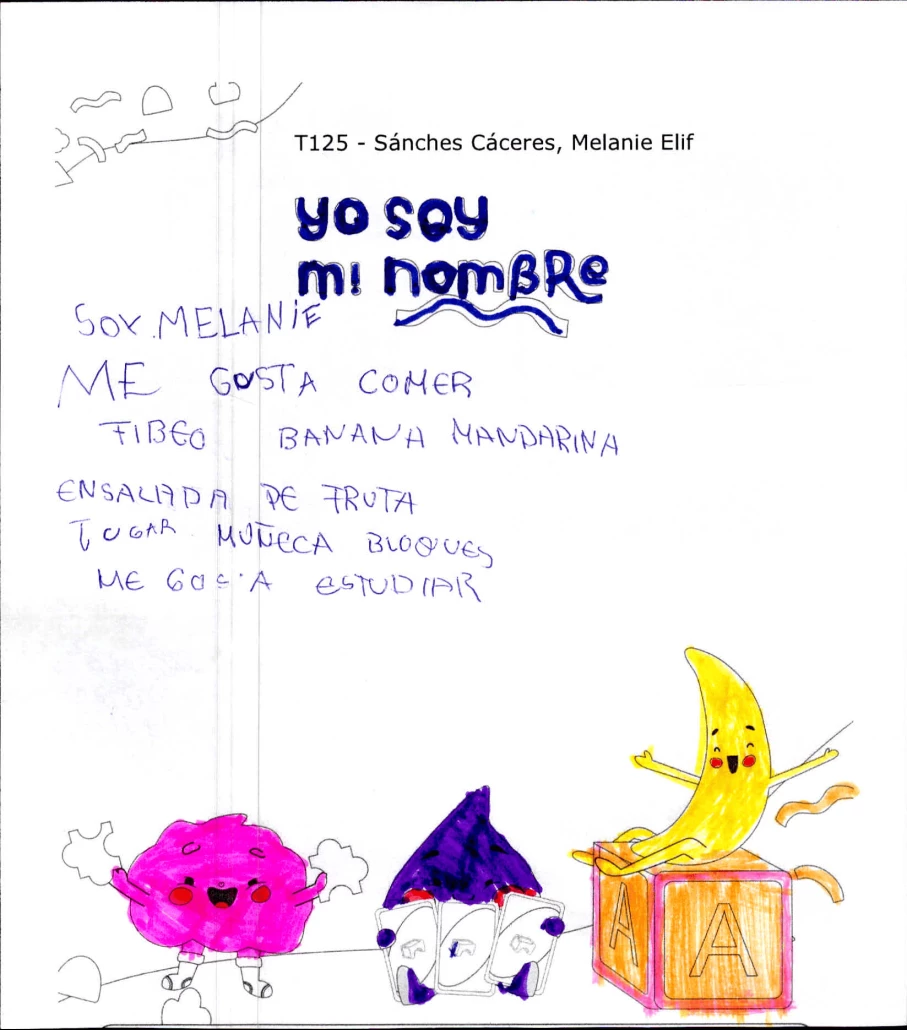 T125 - Sánches Cáceres, Melanie Elif
yo soy
mi nombre
SOY MELANIE
ME GUSTA COMER
FIBEO BANANA MANDARINA
ENSALADA DE FRUTA
JUGAR MUÑECA BLOQUES
ME GUSTA ESTUDIAR
A A